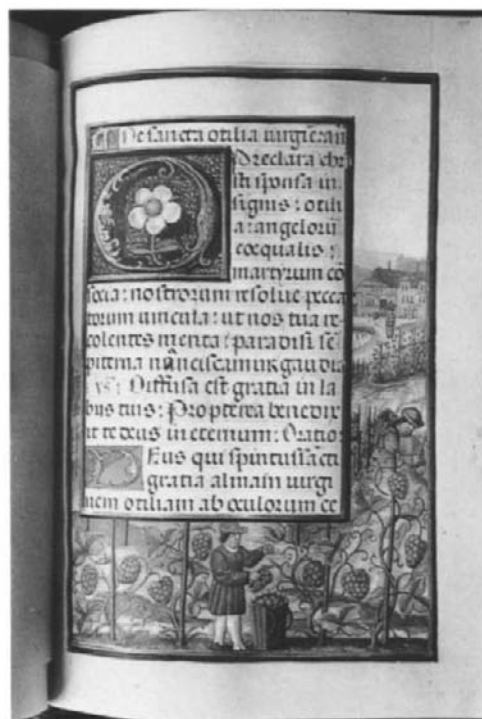 De sancta otilia uirgīe. an̄
O preclara chri
sti sponsa in
signis : otili
a : angelorū
coequalis :
martyrum cō
socia : nostrorum resolue pecca
torum uincula : ut nos tua re
colentes merita : paradisi sē
piterna nanciscamur gaudia
℣. Diffusa est gratia in la
bijs tuis : Propterea benedix
it te deus in eternum : Oratio
Deus qui spiritussācti
gratia almam uirgi
nem otiliam ab oculorum ce